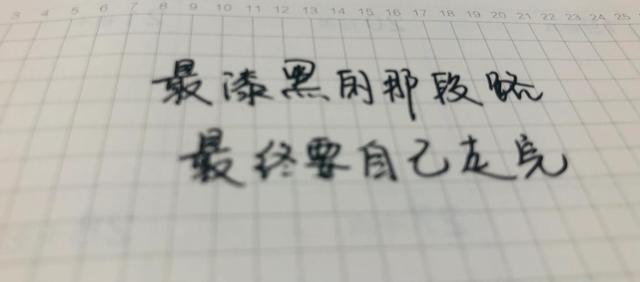 3 4 5 6 7 8 9 10 11 12 13 14 15 16 17 18 19 20 21 22 23 24 25
最漆黑的那段路
最终要自己走完